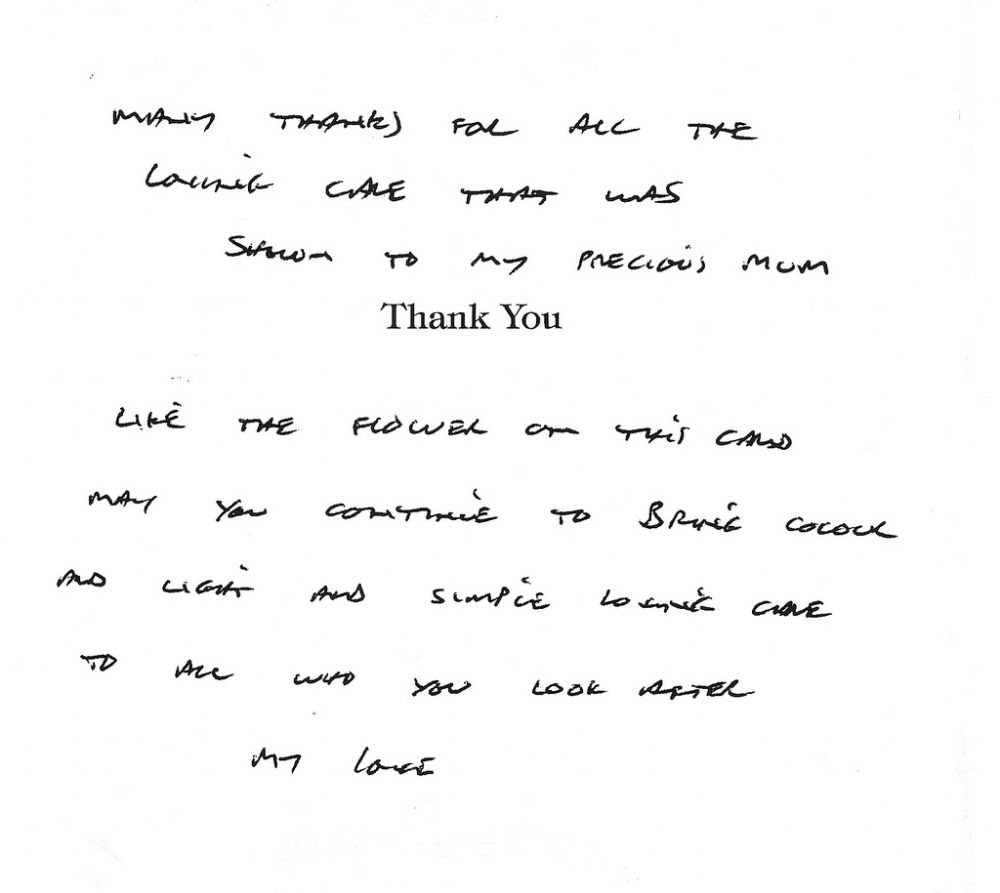 MANY THANKS FOR ALL THE
LOVING CARE THAT WAS
SHOWN TO MY PRECIOUS MUM
Thank You
LIKE THE FLOWER ON THIS CARD
MAY YOU CONTINUE TO BRING COLOUR
AND LIGHT AND SIMPLE LOVING CARE
TO ALL WHO YOU LOOK AFTER
MY LOVE